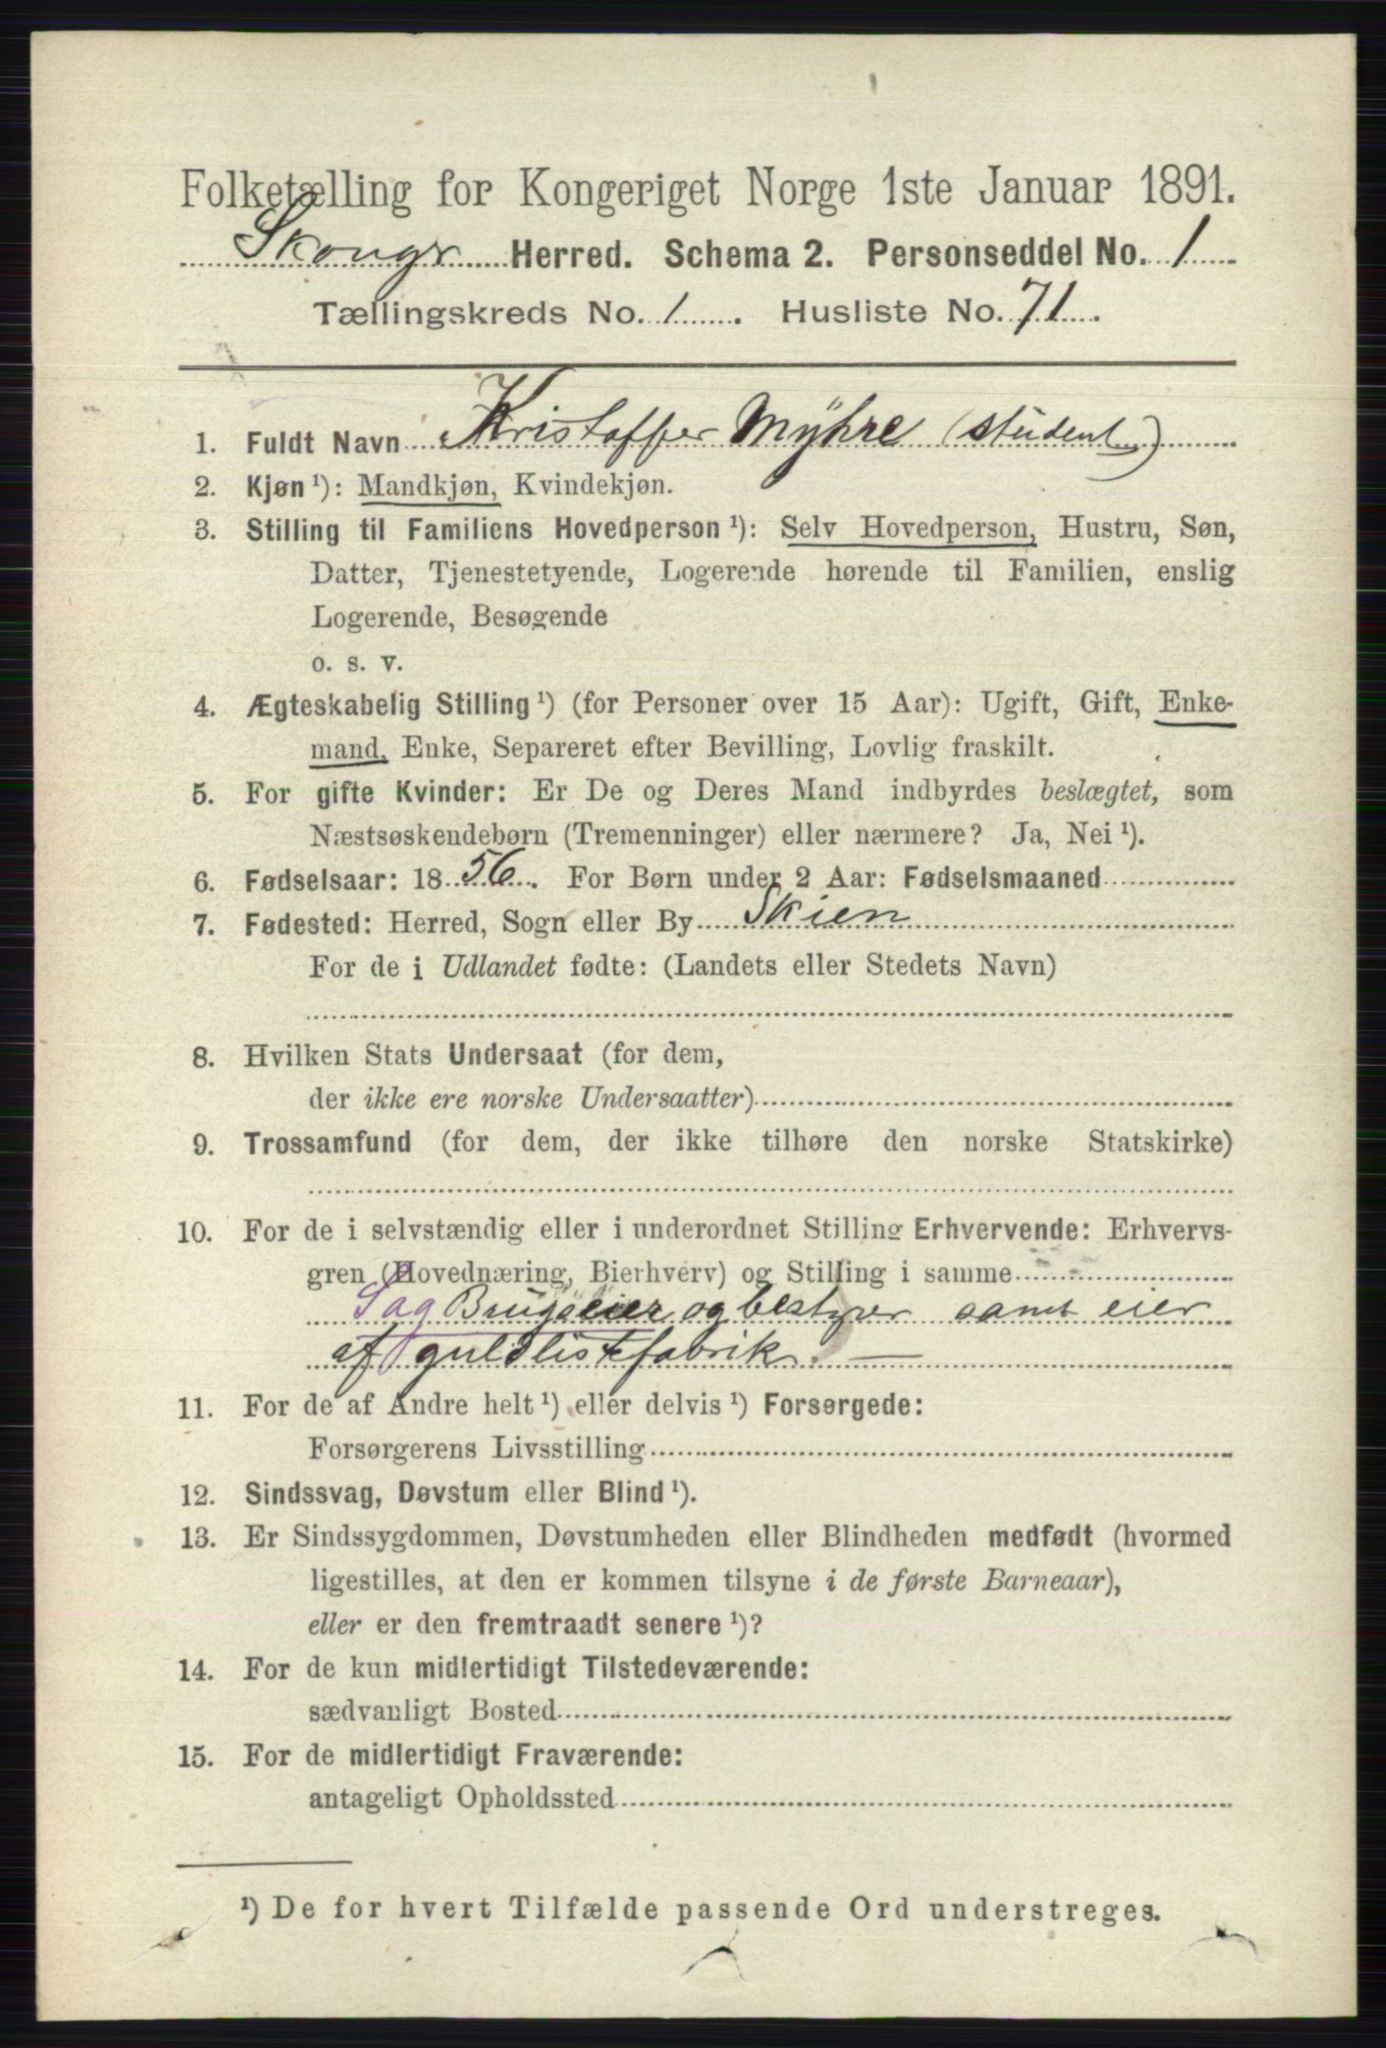 Folketælling for Kongeriget Norge 1ste Januar 1891.
Skouger Herred. Schema 2. Personseddel No. 1
Tællingskreds No. 1. Husliste No. 71.
1. Fuldt Navn Kristoffer Mÿhre (student)
2. Kjøn ¹): Mandkjøn, Kvindekjøn.
3. Stilling til Familiens Hovedperson ¹): Selv Hovedperson, Hustru, Søn,
Datter, Tjenestetyende, Logerende hørende til Familien, enslig
Logerende, Besøgende
o. s. v.
4. Ægteskabelig Stilling ¹) (for Personer over 15 Aar): Ugift, Gift, Enke-
mand, Enke, Separeret efter Bevilling, Lovlig fraskilt.
5. For gifte Kvinder: Er De og Deres Mand indbyrdes beslægtet, som
Næstsøskendebørn (Tremenninger) eller nærmere? Ja, Nei ¹).
6. Fødselsaar: 1856. For Børn under 2 Aar: Fødselsmaaned
7. Fødested: Herred, Sogn eller By Skien
For de i Udlandet fødte: (Landets eller Stedets Navn)
8. Hvilken Stats Undersaat (for dem,
der ikke ere norske Undersaatter)
9. Trossamfund (for dem, der ikke tilhøre den norske Statskirke)
10. For de i selvstændig eller i underordnet Stilling Erhvervende: Erhvervs-
gren (Hovednæring, Bierhverv) og Stilling i samme
Sag Brugseier og bestyrer samt eier
af guldlistefabrik. —
11. For de af Andre helt ¹) eller delvis ¹) Forsørgede:
Forsørgerens Livsstilling
12. Sindssvag, Døvstum eller Blind ¹).
13. Er Sindssygdommen, Døvstumheden eller Blindheden medfødt (hvormed
ligestilles, at den er kommen tilsyne i de første Barneaar),
eller er den fremtraadt senere ¹)?
14. For de kun midlertidigt Tilstedeværende:
sædvanligt Bosted
15. For de midlertidigt Fraværende:
antageligt Opholdssted
¹) De for hvert Tilfælde passende Ord understreges.